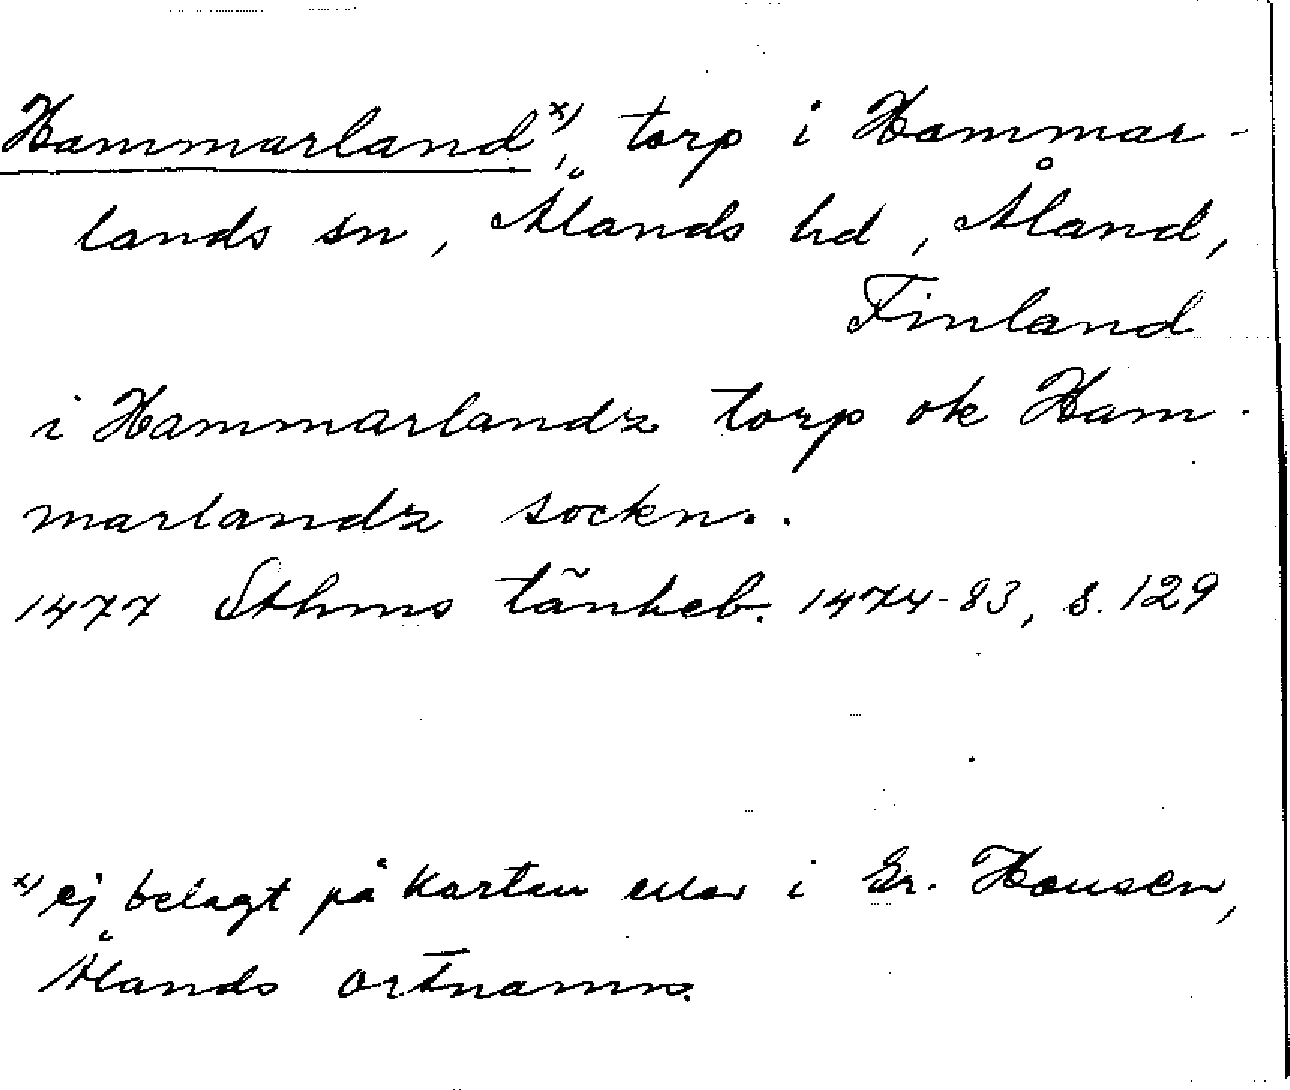 Hammarland x), torp i Hammar-
lands sn, Ålands hd, Åland,
Finland
i Hammarlandz torp ok Ham-
marlandz sockn..
1477 Sthms tänkeb. 1474-83, s. 129
x) ej belagt på kartan eller i Gr. Hausen,
Ålands ortnamn.